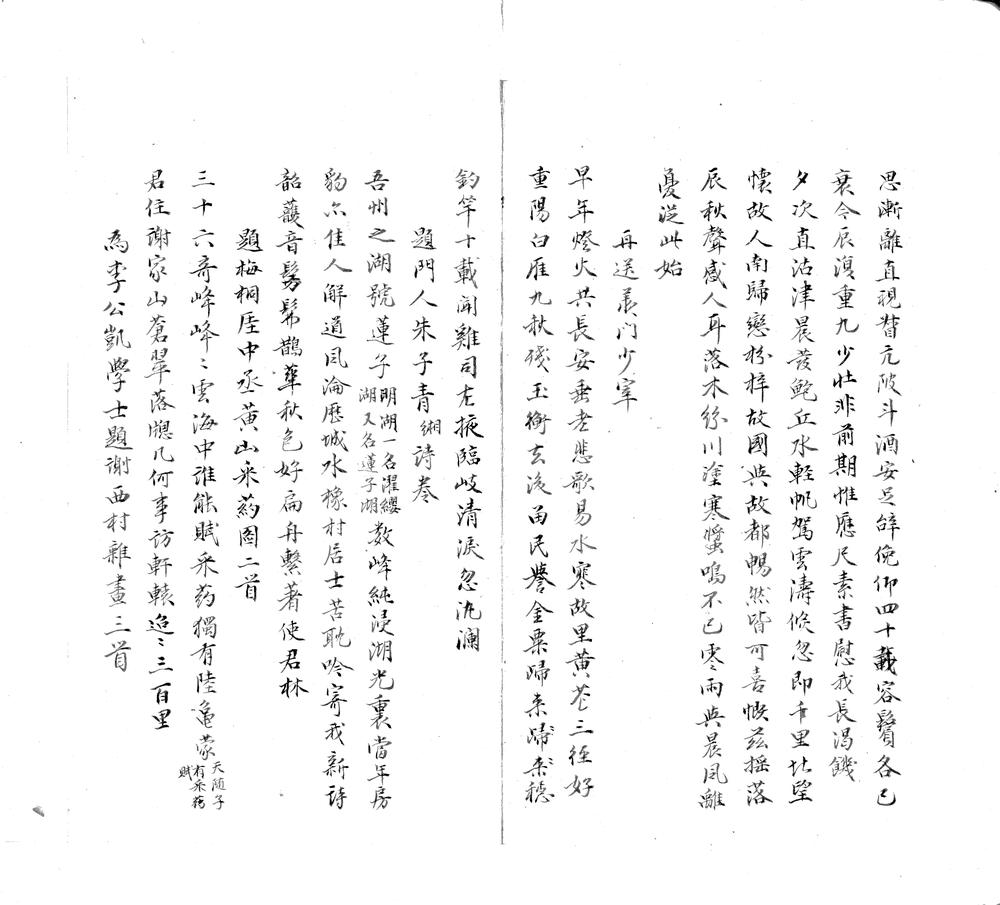 思漸離直視瞀元陂斗酒安足辭俛仰四十載容鬢各已
衰今辰復重九少壯非前期惟應尺素書慰我長渴饑
夕次直沽津晨發鮑丘水輕帆駕雲濤倐忽即千里北望
懷故人南歸戀枌梓故國與故都暢然皆可喜慨茲揺落
辰秋聲感人耳落木綠川塗寒螿鳴不已零雨與晨風離
憂從此始
再送羨門少宰
早年燈火共長安垂老悲歌易水寒故里黄花三徑好
重陽白雁九秋殘玉衡去後留民譽金粟歸来歸来穏
釣竿十載聞雞司左掖臨岐清淚忽汍瀾
題門人朱子青緗詩卷
吾州之湖號蓮子明湖一名濯纓湖又名蓮子湖數峰純浸湖光裏當年房
豹亦佳人解道風淪歷城水橡村居士苦耽吟寄我新詩
韶頀音髣髴鵲華秋色好扁舟繫著使君林
題梅桐厓中丞黄山采藥圖二首
三十六奇峰峰〻雲海中誰能賦采药獨有陸龜蒙天随子有采药賦
君住謝家山蒼翠落牕几何事訪軒轅迢〻三百里
為李公凱學士題謝西村雜畫三首